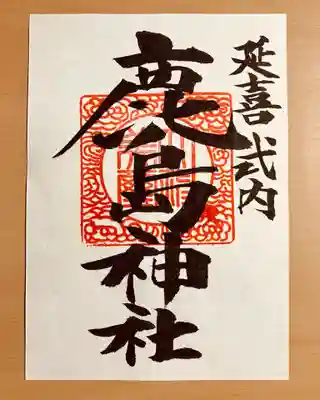 延喜式内
鹿島神社